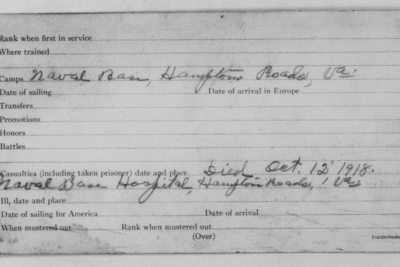 Rank when first in service
Where trained
Camps Naval Base, Hampton Roads, Va.
Date of sailing Date of arrival in Europe
Transfers
Promotions
Honors
Battles
Casualties (including taken prisoner) date and place Died Oct. 12 1918.
Naval Base Hospital, Hampton Roads, Va
Ill, date and place
Date of sailing for America Date of arrival
When mustered out Rank when mustered out
(Over)